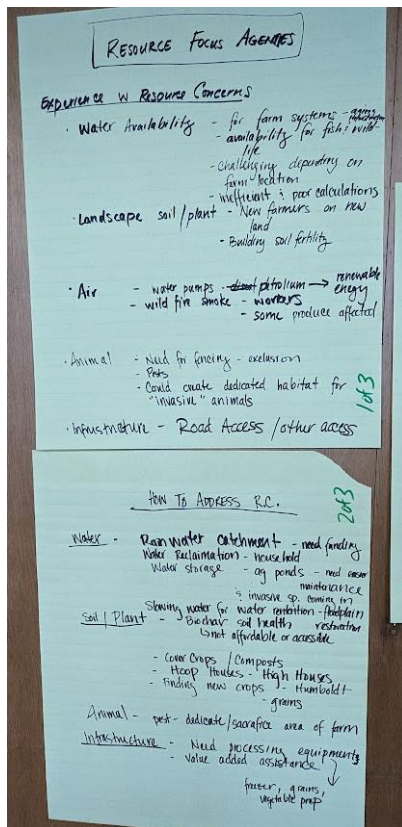 RESOURCE FOCUS AGENCIES
Experience w Resource Concerns
· Water Availability - for farm systems - aging infrastructure
- availability for fish & wild-
life
- challenging depending on
farm location
- inefficient & poor calculations
· Landscape soil/plant - New farmers on new
land
- Building soil fertility
· Air - water pumps - petrolium → renewable
enegy
- wild fire smoke - workers
- some produce affected
· Animal - Need for fencing - exclusion
- Pests
- Could create dedicated habitat for
"invasive" animals
· Infrustructure - Road Access / other access
1 of 3
2 of 3
HOW TO ADDRESS R.C.
Water - Rain water catchment - need funding
Water Reclaimation - household
Water storage - ag ponds - need easier
maintenance
& invasive sp. coming in
Slowing water for water retention - floodplain
restoration
Soil / Plant - Biochar soil health
↳ not affordable or accessible
- Cover Crops / Composts
- Hoop Houses - High Houses
- Finding new crops - Humboldt
- grains
Animal - pest - dedicate/sacrafice area of farm
Infrastructure - Need processing equipment
- Value added assistance
freezer, grains,
vegetable prep